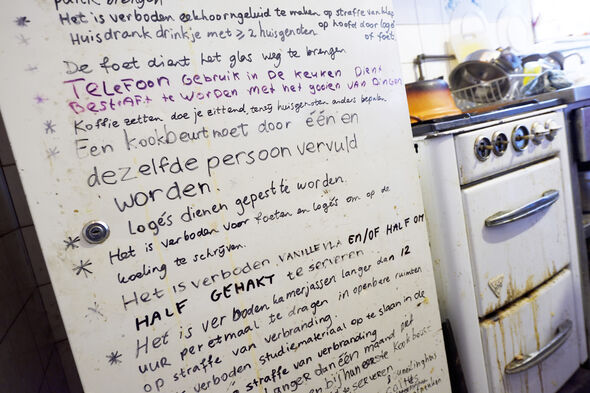 paniek brengen
Het is verboden eekhoorngeluid te maken op straffe van klap
op hoofd door logés
Huisdrank drink je met ≥ 2 huisgenoten
of foets
De foet dient het glas weg te brengen
TELEFOON GEBRUIK IN DE KEUKEN DIENT
BESTRAFT TE WORDEN MET HET GOOIEN VAN DINGEN
Koffie zetten doe je zittend, tenzij huisgenoten anders bepalen.
Een kookbeurt moet door één en
dezelfde persoon vervuld
worden.
Logés dienen gepest te worden.
Het is verboden voor foeten en logés om op de
koeling te schrijven.
Het is verboden VANILLEVLA EN/OF HALF OM
HALF GEHAKT te serveren
Het is verboden kamerjassen langer dan 12
uur per etmaal te dragen in openbare ruimten
op straffe van verbranding.
verboden studiemateriaal op te slaan in de
straffe van verbranding
langer dan één maand
te serveren